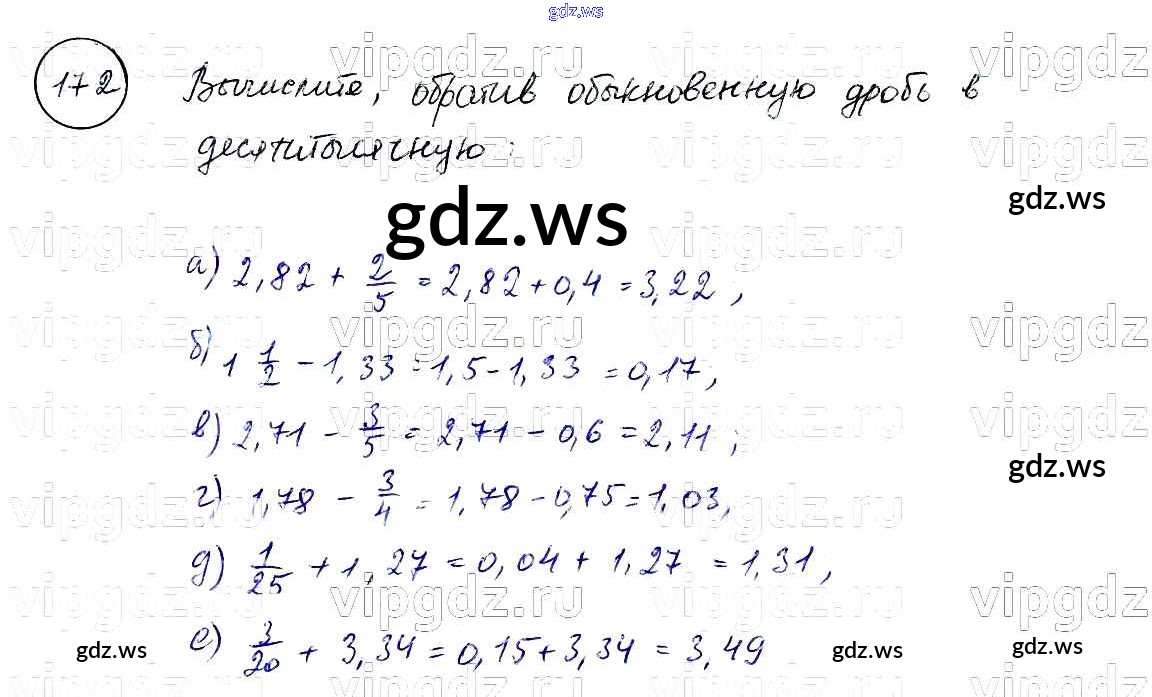 gdz.ws
172 Вычислите, обратив обыкновенную дробь в
десятитысячную:
gdz.ws
gdz.ws
а) 2,82 + 2/5 = 2,82 + 0,4 = 3,22,
б) 1 1/2 - 1,33 = 1,5 - 1,33 = 0,17,
в) 2,71 - 3/5 = 2,71 - 0,6 = 2,11;
gdz.ws
г) 1,78 - 3/4 = 1,78 - 0,75 = 1,03,
д) 1/25 + 1,27 = 0,04 + 1,27 = 1,31,
е) 3/20 + 3,34 = 0,15 + 3,34 = 3,49
gdz.ws gdz.ws gdz.ws
vipgdz.ru vipgdz.ru vipgdz.ru vipgdz.ru